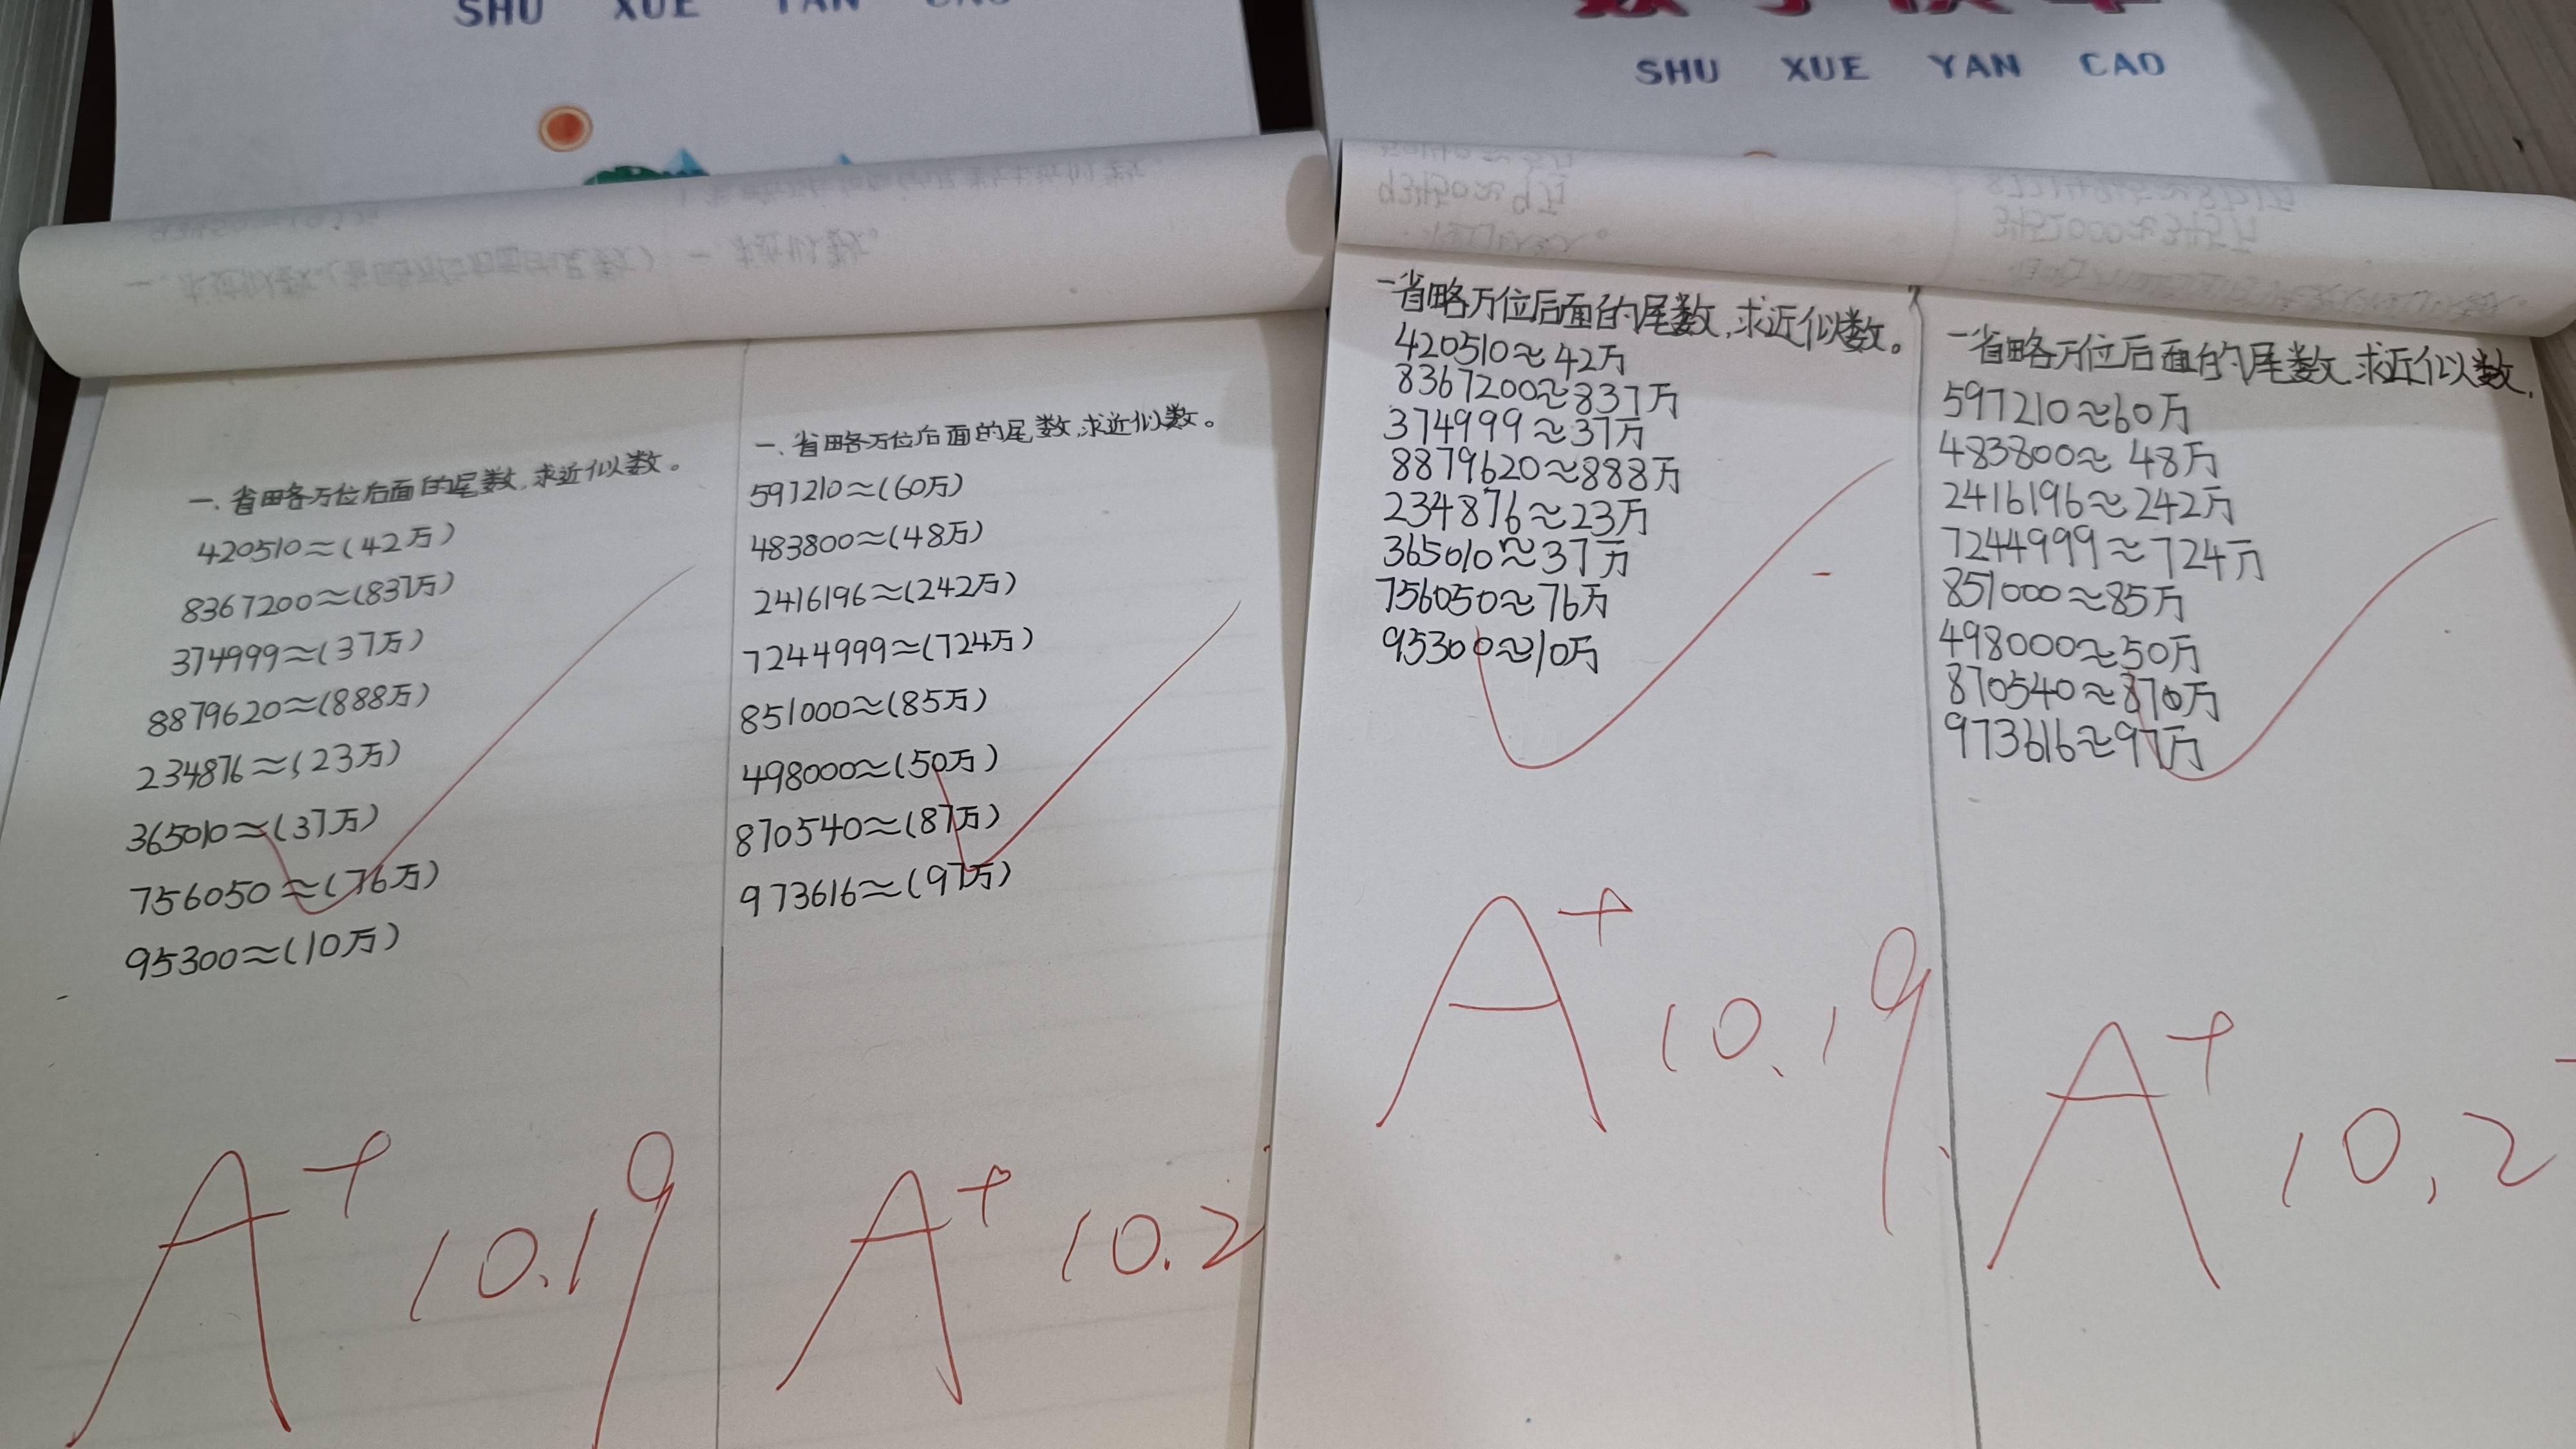 SHU XUE YAN CAO
一、省略万位后面的尾数,求近似数。
420510≈(42万)
8367200≈(837万)
374999≈(37万)
8879620≈(888万)
234876≈(23万)
365010≈(37万)
756050≈(76万)
95300≈(10万)
A+ 10.19
一、省略万位后面的尾数,求近似数。
597210≈(60万)
483800≈(48万)
2416196≈(242万)
7244999≈(724万)
851000≈(85万)
498000≈(50万)
870540≈(87万)
973616≈(97万)
A+ 10.2
SHU XUE YAN CAO
一省略万位后面的尾数,求近似数。
420510≈42万
8367200≈837万
374999≈37万
8879620≈888万
234876≈23万
365010≈37万
756050≈76万
95300≈10万
A+ 10.19
一省略万位后面的尾数,求近似数.
597210≈60万
483800≈48万
2416196≈242万
7244999≈724万
851000≈85万
498000≈50万
870540≈870万
973616≈97万
A+ 10.2